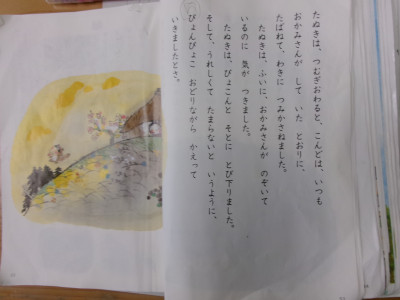 たぬきは、つむぎおわると、こんどは、いつも
おかみさんが して いた とおりに、
たばねて、わきに つみかさねました。
たぬきは、ふいに、おかみさんが のぞいて
いるのに 気が つきました。
たぬきは、ぴょこんと そとに とび下りました。
そして、うれしくて たまらないと いうように、
ぴょんぴょこ おどりながら かえって
いきましたとさ。